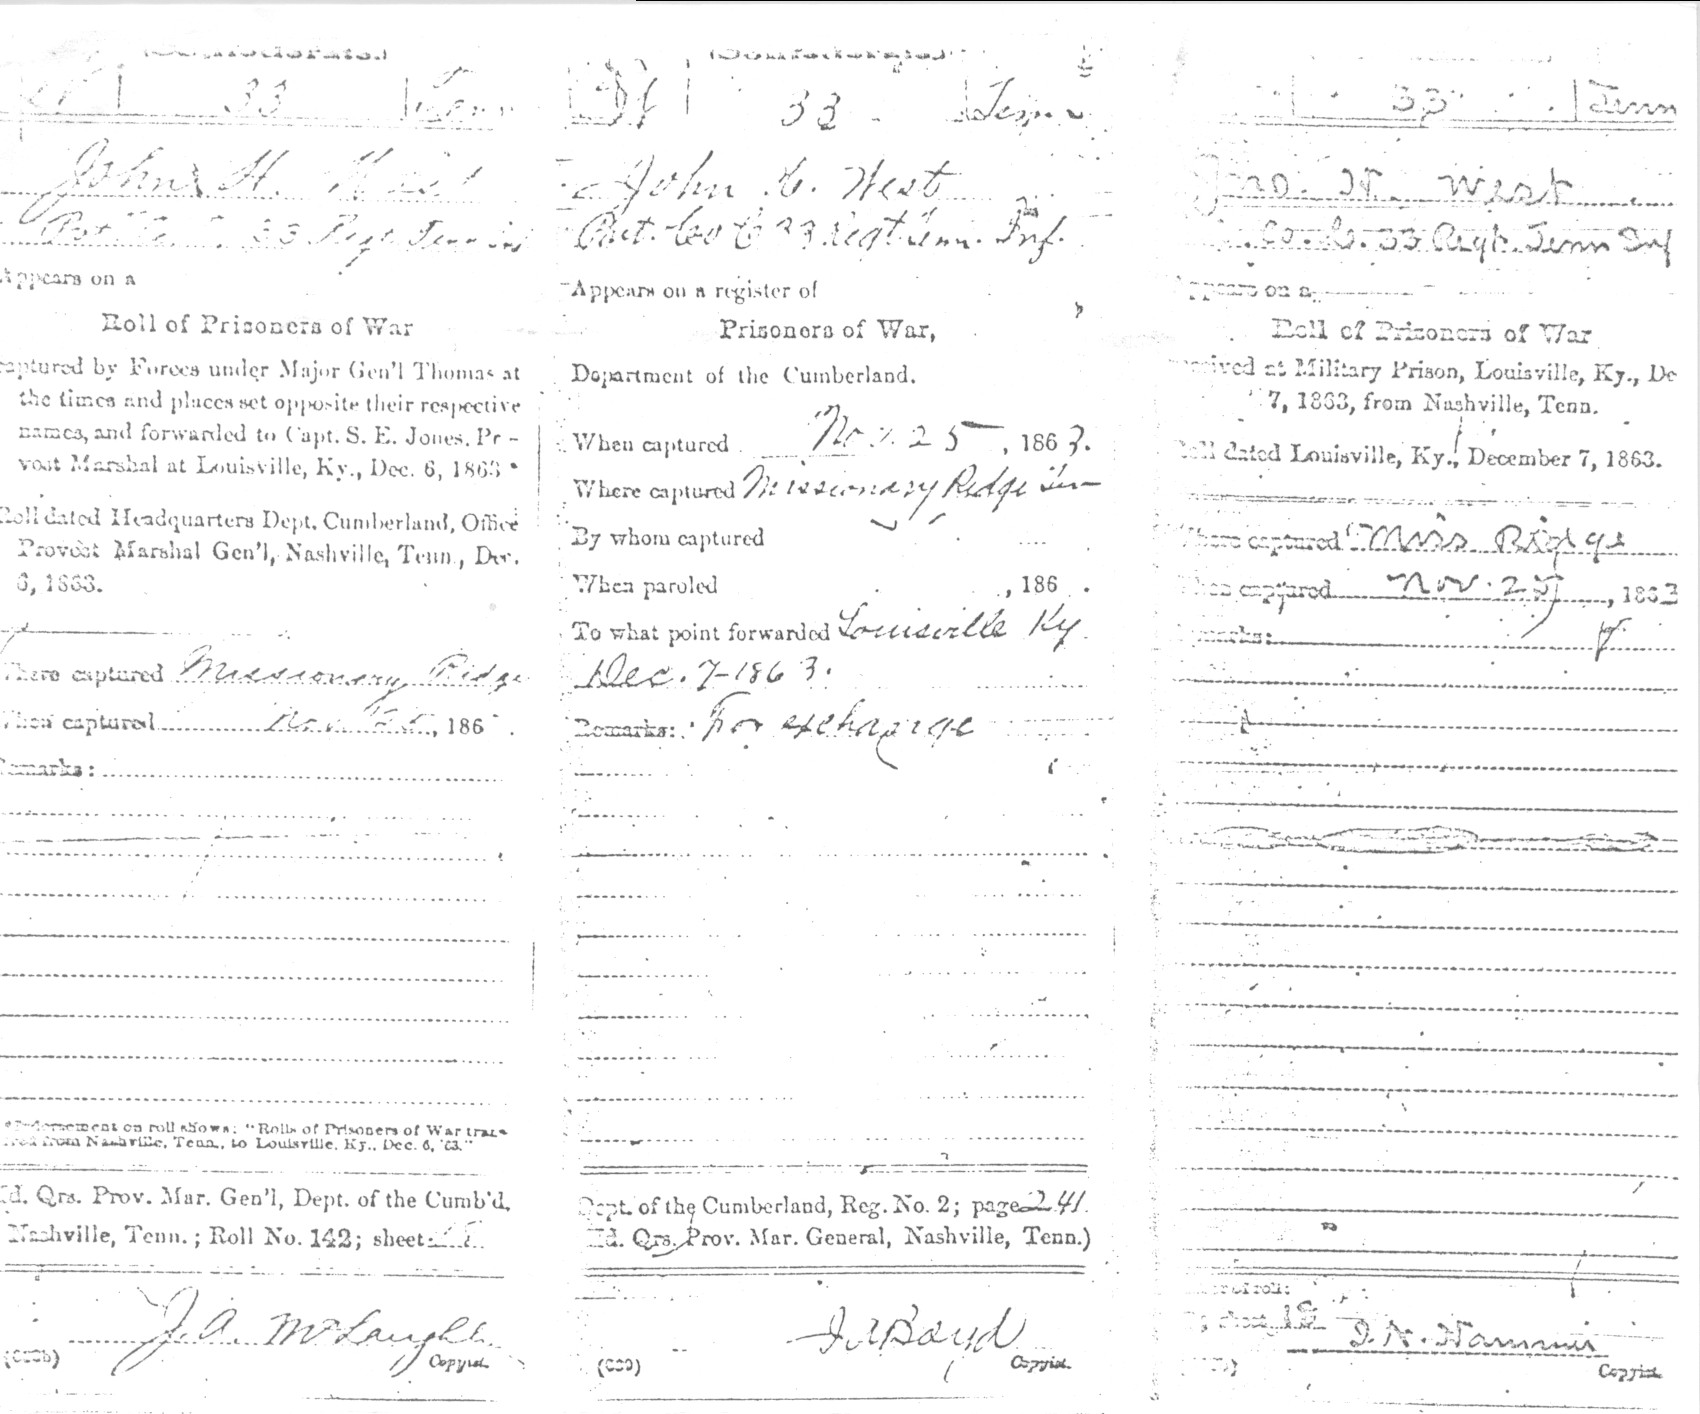 (Confederate.)
33 Tenn
John H. West
Pvt Co. C. 33 Regt Tenn Inf
Appears on a
Roll of Prisoners of War
captured by Forces under Major Gen'l Thomas at
the times and places set opposite their respective
names, and forwarded to Capt. S. E. Jones, Pr -
vost Marshal at Louisville, Ky., Dec. 6, 1863 *
Roll dated Headquarters Dept. Cumberland, Office
Provost Marshal Gen'l, Nashville, Tenn., Dec.
6, 1863.
Where captured Missionary Ridge
When captured Nov 25, 186 .
Remarks:
*Indorsement on roll shows: "Rolls of Prisoners of War trans
red from Nashville, Tenn., to Louisville, Ky., Dec. 6, '63."
Hd. Qrs. Prov. Mar. Gen'l, Dept. of the Cumb'd,
Nashville, Tenn.; Roll No. 142; sheet
J. A. McLaughlin
Copyist.
(Confederate.)
33 Tenn
John C. West
Pvt. Co C 33 Regt Tenn. Inf.
Appears on a register of
Prisoners of War,
Department of the Cumberland.
When captured Nov. 25, 1863.
Where captured Missionary Ridge Ten
By whom captured
When paroled , 186 .
To what point forwarded Louisville Ky
Dec. 7-1863.
Remarks: For exchange
Dept. of the Cumberland, Reg. No. 2; page 241.
Hd. Qrs. Prov. Mar. General, Nashville, Tenn.)
J A Boyd
Copyist.
33 Tenn
Jno. H. West
Co. C. 33 Regt. Tenn Inf
Appears on a
Roll of Prisoners of War
received at Military Prison, Louisville, Ky., De
7, 1863, from Nashville, Tenn.
Roll dated Louisville, Ky., December 7, 1863.
Where captured Miss Ridge
When captured Nov. 25, 1863
Remarks:
Copyist.